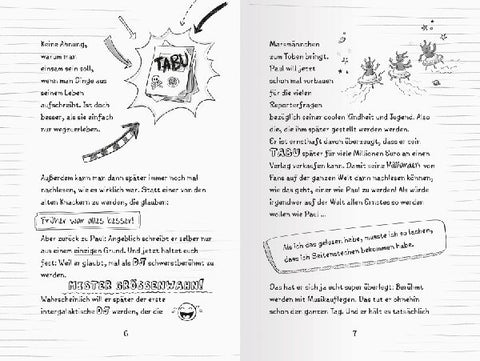 Keine Ahnung,
warum man
einsam sein soll,
wenn man Dinge
aus seinem Leben
aufschreibt. Ist doch
besser, als sie einfach
nur wegzuerleben.
TABU
Außerdem kann man dann später immer noch mal
nachlesen, wie es wirklich war. Statt einer von den
alten Knackern zu werden, die glauben:
Früher war alles besser!
Aber zurück zu Paul: Angeblich schreibt er selber nur
aus einem einzigen Grund. Und jetzt haltet euch
fest: Weil er glaubt, mal als DJ schwerstberühmt zu
werden.
MISTER GRÖSSENWAHN!
Wahrscheinlich will er später der erste
intergalaktische DJ werden, der die
6
Marsmännchen
zum Toben bringt.
Paul will jetzt
schon mal vorbauen
für die vielen
Reporterfragen
bezüglich seiner coolen Kindheit und Jugend. Also
die, die ihm später gestellt werden werden.
Er ist ernsthaft davon überzeugt, dass er sein
TABU später für viele Millionen Euro an einen
Verlag verkaufen kann. Damit seine Millionen von
Fans auf der ganzen Welt dann nachlesen können,
wie das geht, einer wie Paul zu werden! Als würde
irgendwer auf der Welt allen Ernstes so werden
wollen wie Paul ...
Als ich das gelesen habe, musste ich so lachen,
dass ich Seitenstechen bekommen habe.
Das hat er sich ja echt super überlegt: Berühmt
werden mit Musikauflegen. Das tut er ohnehin
schon den ganzen Tag. Und er hält es tatsächlich
7